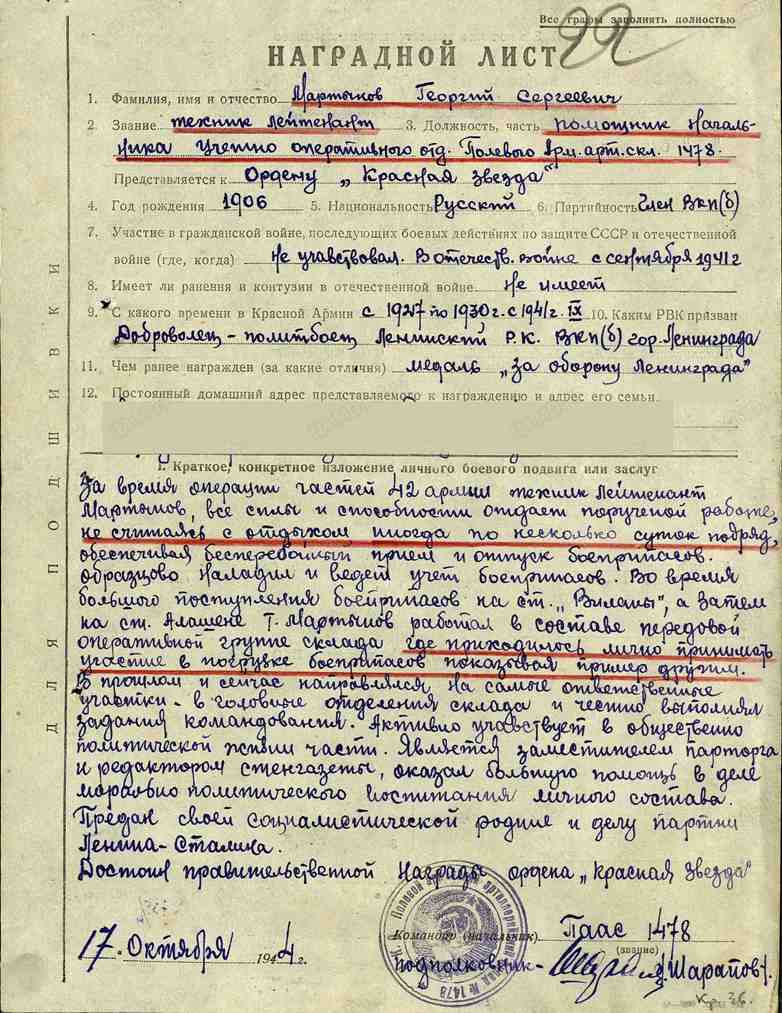 Все графы заполнять полностью
22
НАГРАДНОЙ ЛИСТ
1. Фамилия, имя и отчество Мартынов Георгий Сергеевич
2. Звание техник лейтенант 3. Должность, часть помощник Началь-
ника учетно оперативного отд. Полевого Арм. арт. скл. 1478.
Представляется к Ордену „Красная звезда"
4. Год рождения 1906 5. Национальность Русский 6. Партийность Член ВКП(б)
7. Участие в гражданской войне, последующих боевых действиях по защите СССР и отечественной
войне (где, когда) Не учавствовал. В отечеств. войне с сентября 1941 г
8. Имеет ли ранения и контузии в отечественной войне Не имеет
9. С какого времени в Красной Армии с 1927 по 1930 г. с 1941 г. IX 10. Каким РВК призван
Доброволец - политбоец Ленинский Р.К. ВКП(б) гор. Ленинграда
11. Чем ранее награжден (за какие отличия) медаль „За оборону Ленинграда"
12. Постоянный домашний адрес представляемого к награждению и адрес его семьи
I. Краткое, конкретное изложение личного боевого подвига или заслуг
За время операции частей 42 армии техник лейтенант
Мартынов, все силы и способности отдает порученой работе,
не считаясь с отдыхом иногда по несколько суток подряд,
обеспечивая бесперебойный прием и отпуск боеприпасов.
Образцово наладил и ведет учет боеприпасов. Во время
большого поступления боеприпасов на ст. „Виланы", а затем
на ст. Алашене т. Мартынов работал в составе передовой
оперативной группе склада где приходилось лично принимать
участие в погрузке боеприпасов показывая пример другим.
В прошлом и сейчас направлялся на самые ответственные
участки - в головные отделения склада и честно выполнял
задания командования. Активно учавствует в общественно
политической жизни части. Является заместителем парторга
и редактором стенгазеты, оказал большую помощь в деле
морально политического воспитания личного состава.
Предан своей социалистической родине и делу партии
Ленина - Сталина.
Достоин правительственной Награды ордена „Красная звезда"
Командир (начальник) ПААС 1478
(звание)
17. Октября 1944 г.
подполковник - /Шарапов/.
ДЛЯ ПОДШИВКИ